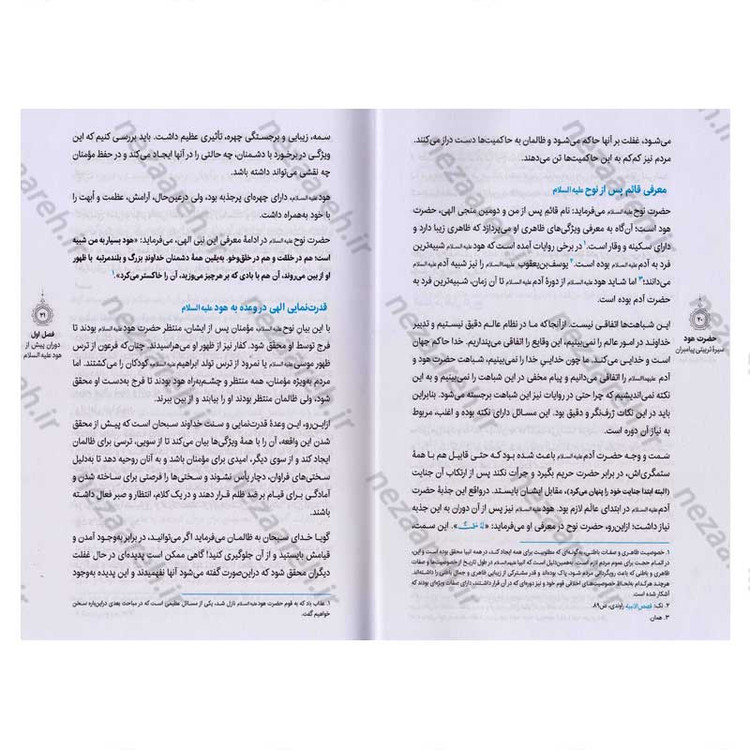 می‌شود، غفلت بر آنها حاکم می‌شود و ظالمان به حاکمیت‌ها دست دراز می‌کنند.
مردم نیز کم‌کم به این حاکمیت‌ها تن می‌دهند.
معرفی قائم پس از نوح علیه السلام
حضرت نوح علیه السلام می‌فرماید: نام قائم پس از من و دومین منجی الهی، حضرت
هود است؛ آن‌گاه به معرفی ویژگی‌های ظاهری او می‌پردازد که ظاهری زیبا دارد و
دارای سکینه و وقار است.۱ در برخی روایات آمده است که هود علیه السلام شبیه‌ترین
فرد به آدم علیه السلام بوده است.۲ یوسف‌بن‌یعقوب علیهما السلام را نیز شبیه آدم علیه السلام
می‌دانند؛۳ اما شاید هود علیه السلام از دورهٔ آدم علیه السلام تا آن زمان، شبیه‌ترین فرد به
حضرت آدم بوده است.
این شباهت‌ها اتفاقی نیست. ازآنجاکه ما در نظام عالم دقیق نیستیم و تدبیر
خداوند در امور عالم را نمی‌بینیم، این وقایع را اتفاقی می‌پنداریم. خدا حاکم جهان
است و خدایی می‌کند. ما چون خداییِ خدا را نمی‌بینیم، شباهت حضرت هود و
آدم علیهما السلام را اتفاقی می‌دانیم و پیام مخفی در این شباهت را نمی‌بینیم و به این
نکته نمی‌اندیشیم که چرا حتی در روایات نیز این شباهت برجسته می‌شود. بنابراین
باید در این نکات ژرف‌نگر و دقیق بود. این مسائل دارای نکته بوده و اغلب، مربوط
به نیاز آن دوره است.
سَمت و وجه حضرت آدم علیه السلام باعث شده بود که حتی قابیل هم با همهٔ
ستمگری‌اش، در برابر حضرت حریم بگیرد و جرأت نکند پس از ارتکاب آن جنایت
(البته ابتدا جنایت خود را پنهان می‌کرد)، مقابل ایشان بایستد. درواقع این جذبهٔ حضرت
آدم علیه السلام در ابتدای عالم لازم بود. هود علیه السلام نیز پس از آن دوران به این جذبه
نیاز داشت؛ ازاین‌رو، حضرت نوح در معرفی او می‌فرماید: این سمت،
۱. خصوصیت ظاهری و صفات باطنی، به‌گونه‌ای که مطلوبیت برای همه ایجاد کند، در همه انبیا محقق بوده است و این،
در اتمام حجت برای عموم مردم لازم است. به‌همین‌دلیل است که انبیا علیهم السلام در طول تاریخ از خصوصیات و صفات
ظاهری و باطنی که باعث رویگردانی مردم شود، پاک بوده‌اند و قدر مشترکی از زیبایی ظاهری و جمال باطنی را داشته‌اند.
هرچند هرکدام به‌لحاظ خصوصیت‌های اخلاقی قوم خود و نیز دوره‌ای که در آن قرار داشتند، دارای صفات ویژه‌ای بودند که
آشکار شده است.
۲. نک: قصص الانبیاء راوندی، ص۸۹.
۳. همان.
۲۰
حضرت هود
سیرهٔ تربیتی پیامبران
سمه، زیبایی و برجستگی چهره، تأثیری عظیم داشت. باید بررسی کنیم که این
ویژگی در برخورد با دشمنان، چه حالتی را در آنها ایجاد می‌کند و در حفظ مؤمنان
چه نقشی می‌تواند داشته باشد.
هود علیه السلام دارای چهره‌ای پرجذبه بود، ولی درعین‌حال، آرامش، عظمت و اُبهت را
با خود به‌همراه داشت.
حضرت نوح علیه السلام در ادامهٔ معرفی این نبی الهی، می‌فرماید: «هود بسیار به من شبیه
است؛ هم در خلقت و هم در خلق‌وخو. به‌یقین همهٔ دشمنان خداوند بزرگ و بلندمرتبه با ظهور
او از بین می‌روند، آن هم با بادی که بر هر چیز می‌وزید، آن را خاکستر می‌کرد».۱
قدرت‌نمایی الهی در وعده به هود علیه السلام
با این بیان نوح علیه السلام، مؤمنان پس از ایشان، منتظر حضرت هود علیه السلام بودند تا
فرج توسط او محقق شود. کفار نیز از ظهور او می‌هراسیدند. چنان‌که فرعون از ترس
ظهور موسی علیه السلام یا نمرود از ترس تولد ابراهیم علیه السلام کودکان را می‌کشتند. اما
مردم به‌ویژه مؤمنان، همه منتظر و چشم‌به‌راه هود بودند تا فرج به‌دست او محقق
شود، ولی ظالمان منتظر بودند او را بیابند و از بین ببرند.
ازاین‌رو، این وعدهٔ قدرت‌نمایی و سنت خداوند سبحان است که پیش از محقق
شدن این واقعه، آن را با همهٔ ویژگی‌ها بیان می‌کند تا از سویی، ترسی برای ظالمان
ایجاد کند و از سوی دیگر، امیدی برای مؤمنان باشد و به آنان روحیه دهد تا به‌دلیل
سختی‌های فراوان، دچار یأس نشوند و سختی‌ها را فرصتی برای ساخته شدن و
آمادگی برای قیام بر ضد ظلم قرار دهند و در یک کلام، انتظار و صبر فعال داشته
باشند.
گویا خدای سبحان به ظالمان می‌فرماید اگر می‌توانید، در برابر به‌وجود آمدن و
قیامش بایستید و از آن جلوگیری کنید! گاهی ممکن است پدیده‌ای در حال غفلت
دیگران محقق شود که دراین‌صورت گفته می‌شود آنها نفهمیدند و این پدیده به‌وجود
۱. عذاب باد که به قوم حضرت هود علیه السلام نازل شد، یکی از مسائل عظیمی است که در مباحث بعدی دراین‌باره سخن
خواهیم گفت.
۲۱
فصل اول
دوران پیش از
هود علیه السلام
nezaareh.ir